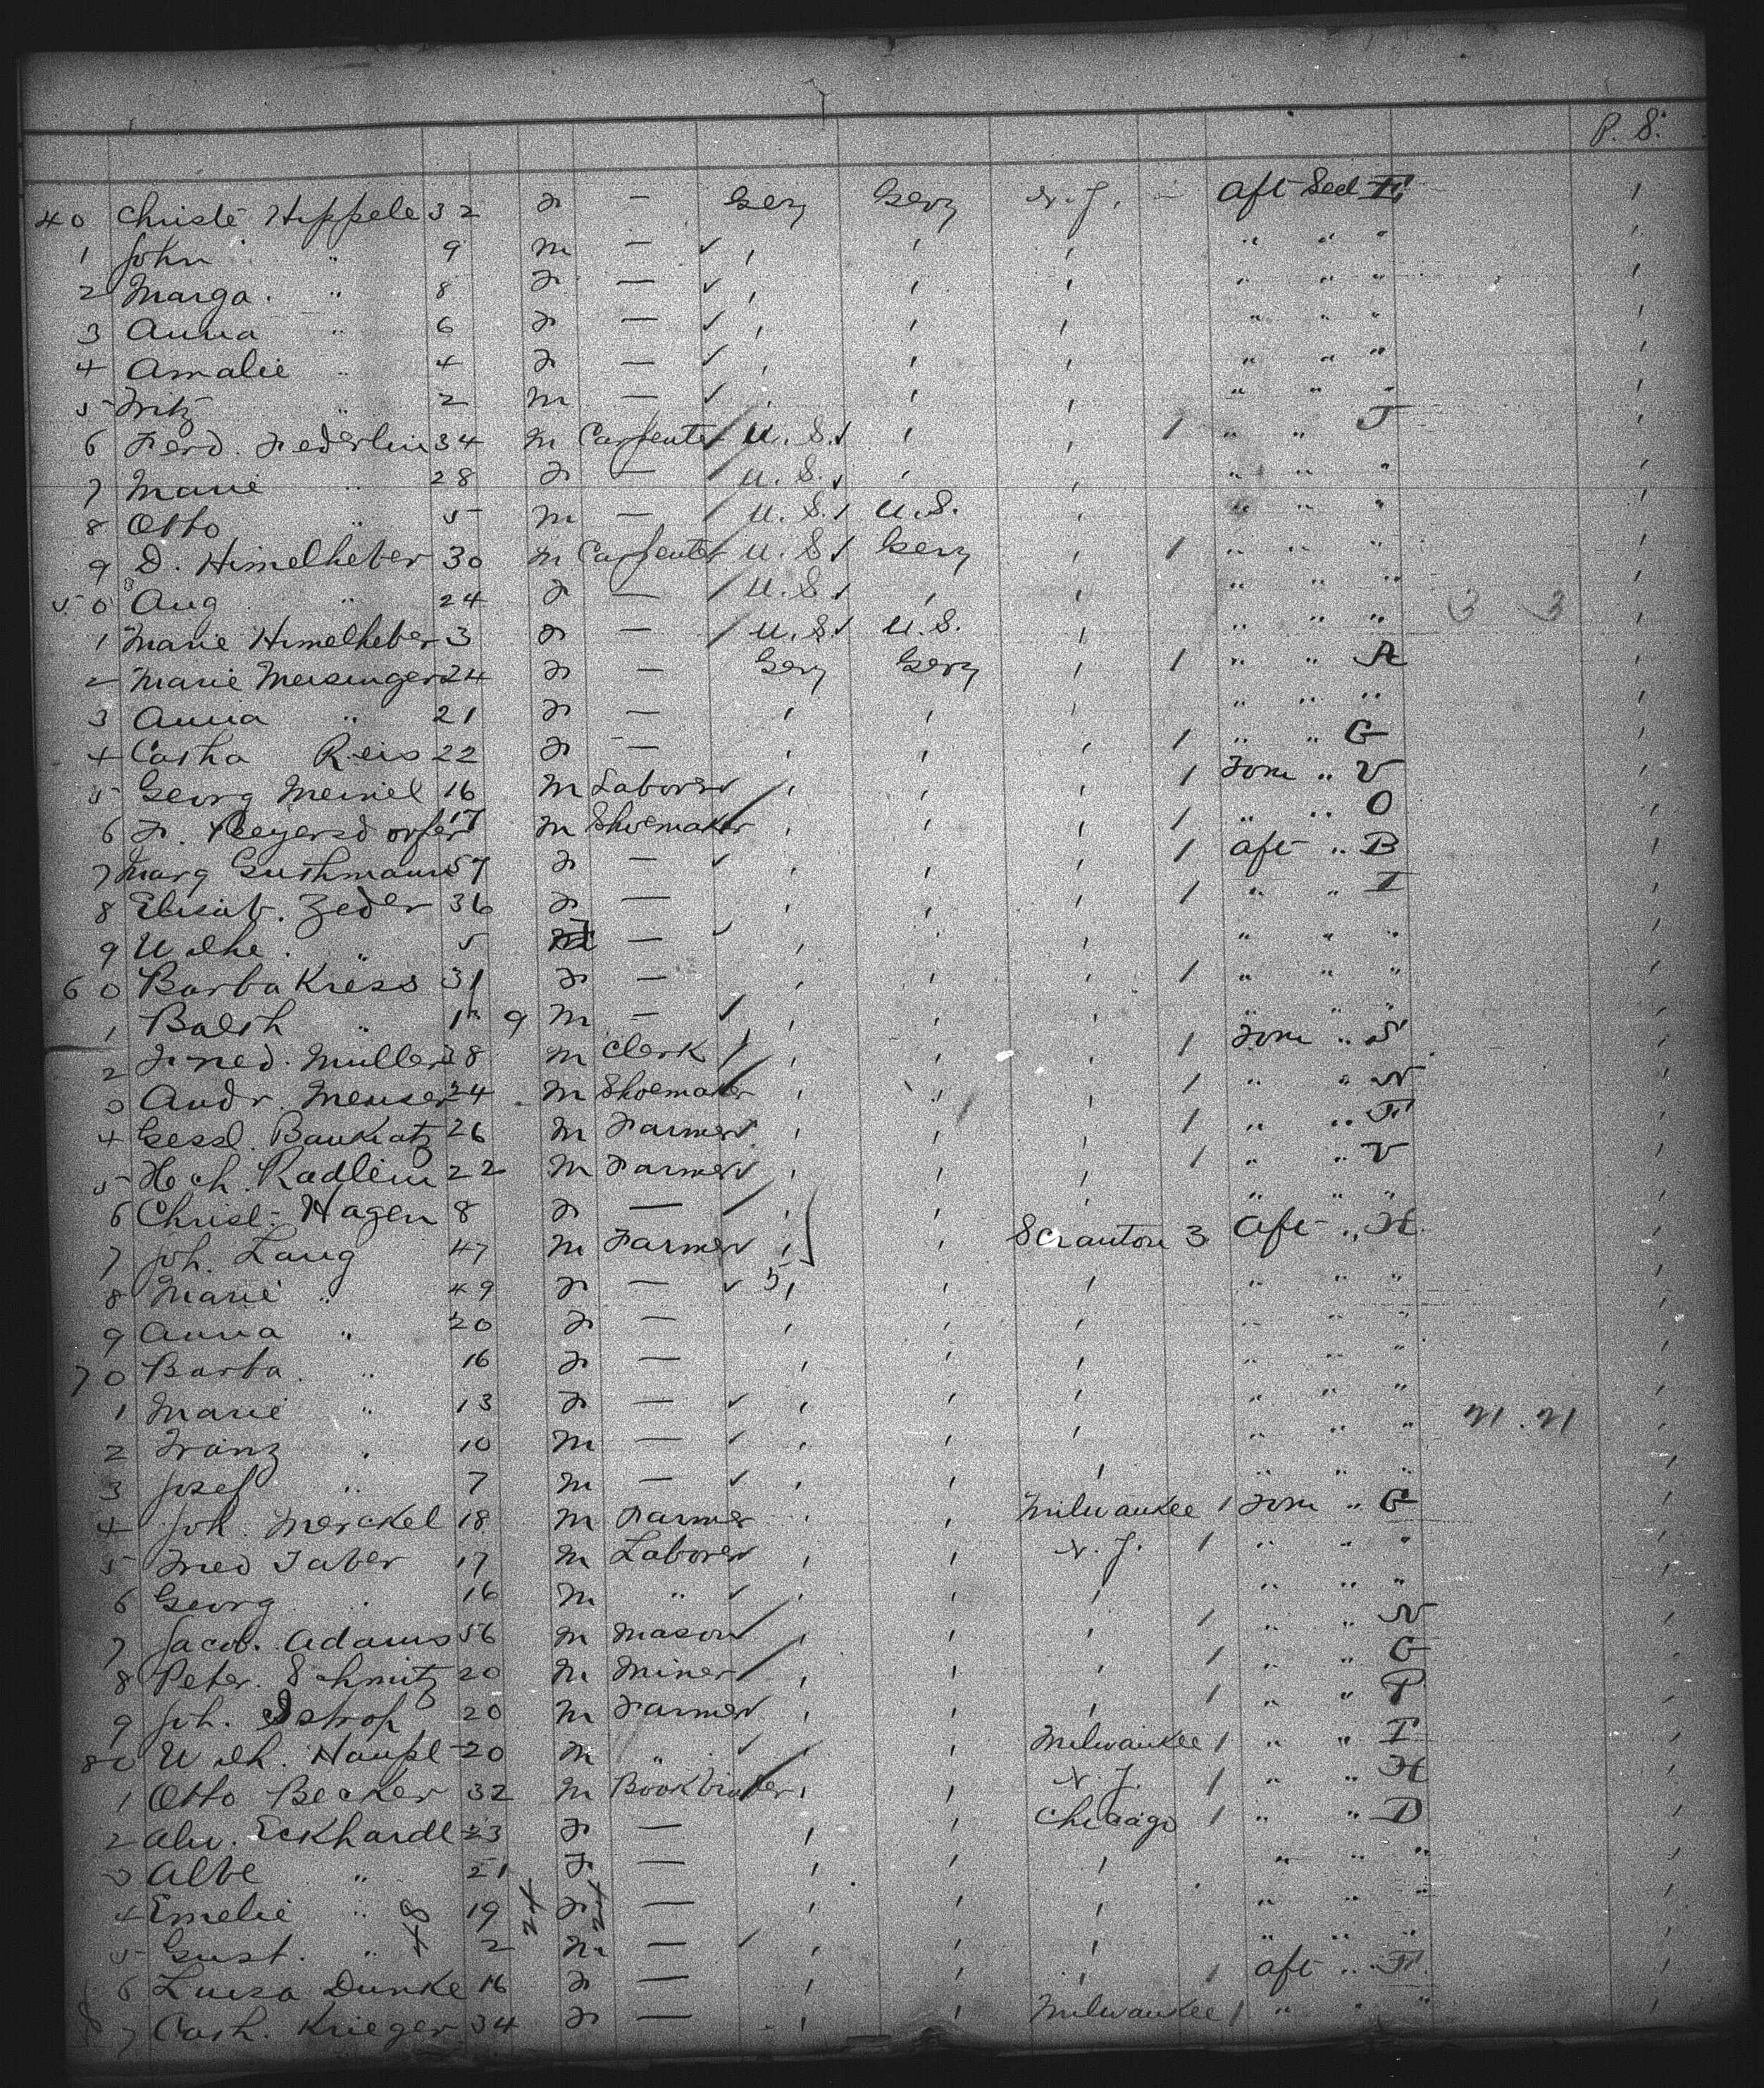 P. S.
40 Christe Hippele 32 F — Gery Gery N.J. – Aft Sect F
1 John " 9 m — ✓ , , , " " "
2 Marga. " 8 F — ✓ , , , " " "
3 Anna " 6 F — ✓ , , , " " "
4 Amalie " 4 F — ✓ , , , " " "
5 Fritz " 2 m — ✓ , , , " " "
6 Ferd. Federlin 34 m Carpenter U.S. , , 1 " " T
7 Marie " 28 F — U.S. , , " " "
8 Otto " 5 m — U.S. U.S. , " " "
9 D. Himelheber 30 m Carpenter U.S. Gery , 1 " " "
50 Aug " 24 F — U.S. , , " " "
1 Marie Himelheber 3 F — U.S. U.S. , " " "
2 Marie Meisinger 24 F — Gery Gery , 1 " " A
3 Anna " 21 F — , , , " " "
4 Catha Reis 22 F — , , , 1 " " G
5 Georg Meinel 16 m Laborer , , , 1 Forw " V
6 F. 17 m Shoemaker , , , 1 " " O
7 Marg Guthmann 57 F — ✓ , , , 1 aft " B
8 Elisab. Zeder 36 F — , , , 1 " " I
9 Wilhe. " 5 — ✓ , , , " " "
60 Barba Kress 31 F — , , , 1 " " "
1 Balth " 9 m — , , , " " "
2 Fried. Müller 38 m Clerk , , , 1 Forw " S
3 Andr. Menser 24 m Shoemaker , , , 1 " " N
4 Bankratz 26 m Farmer , , , 1 " " F
5 Hch. Radlein 22 m Farmer , , , 1 " " V
6 Christ. Hagen 8 F — , , , " " "
7 Joh. Lang 47 m Farmer , , Scranton 3 Aft " H
8 Marie " 49 F — ✓ 5, , , " " "
9 Anna " 20 F — , , , " " "
70 Barba. " 16 F — , , , " " "
1 Marie " 13 F — ✓ , , , " " "
2 Franz " 10 m — ✓ , , , " " "
3 Josef " 7 m — ✓ , , , " " "
4 Joh. Merckel 18 m Farmer , , Milwaukee 1 Forw " G
5 Fried Taber 17 m Laborer , , N.J. 1 " " "
6 Georg " 16 m " ✓ , , , " " "
7 Jacob. Adams 56 m Mason , , , 1 " " N
8 Peter. Schmitz 20 m Miner , , , 1 " " G
9 Joh. 20 m Farmer , , , 1 " " P
80 Wilh. Haupt 20 m " ✓ , Milwaukee 1 " " I
1 Otto Becker 32 m Bookbinder , , N.J. 1 " " H
2 Alw. Eckhardt 23 F — , , Chicago 1 " " D
3 Albe " 21 F — , , , " " "
4 Emelie " 19 F — , , , " " "
5 Gust. " 2 m — ✓ , , , " " "
6 Luisa Dunke 16 F — , , , 1 aft " F
7 Cath. Krieger 34 F — , , Milwaukee 1 " " "